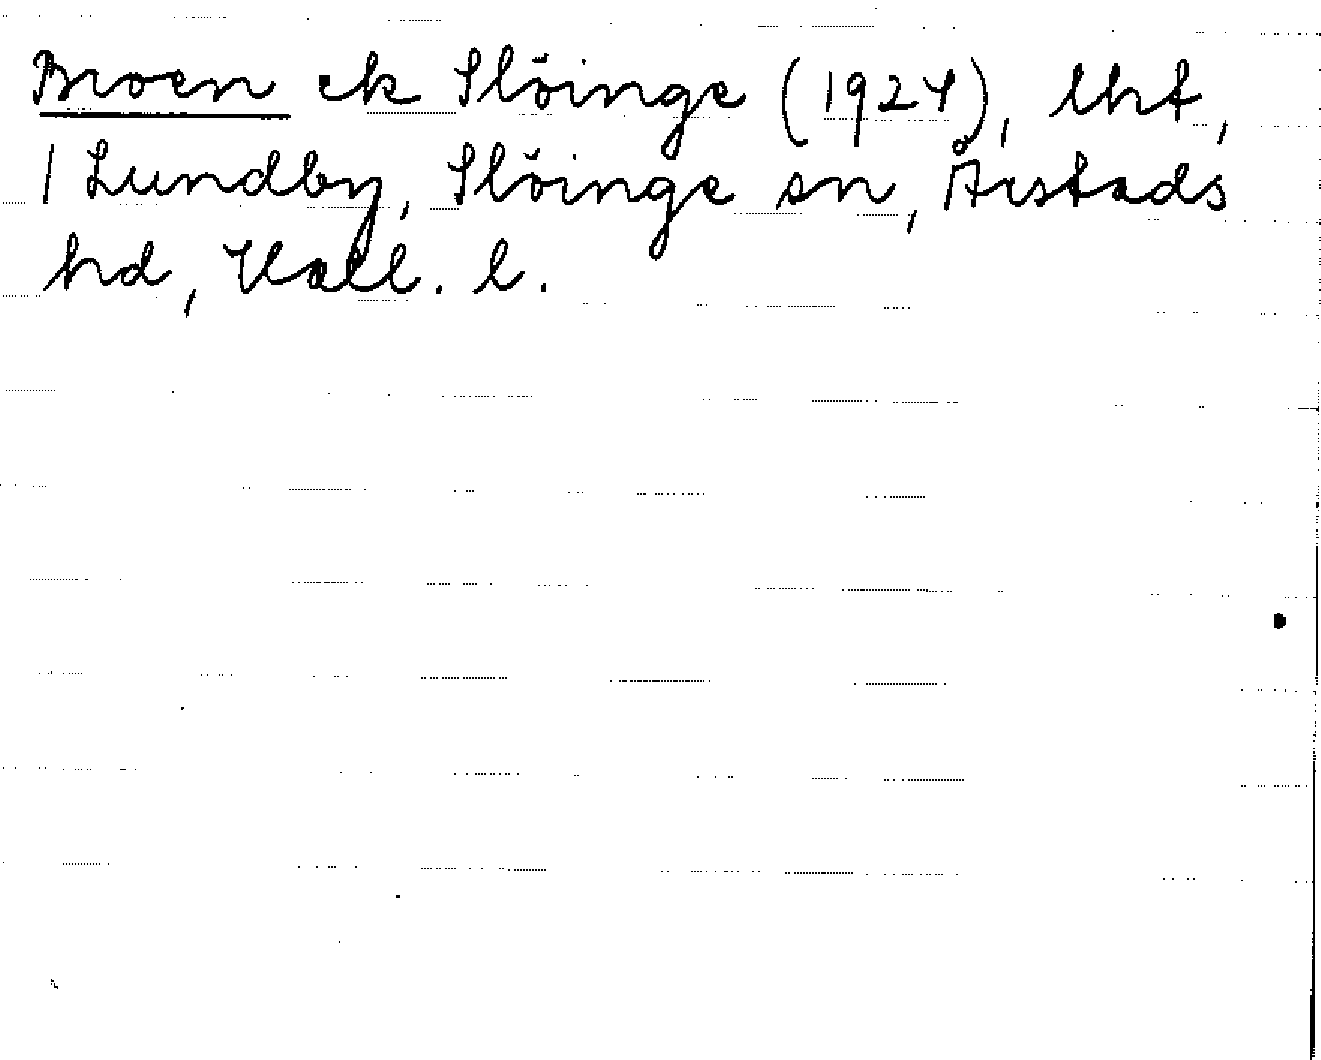 Broen ek Slöinge (1924), lht,
1 Lundby, Slöinge sn, Årstads
hd, Hall. l.